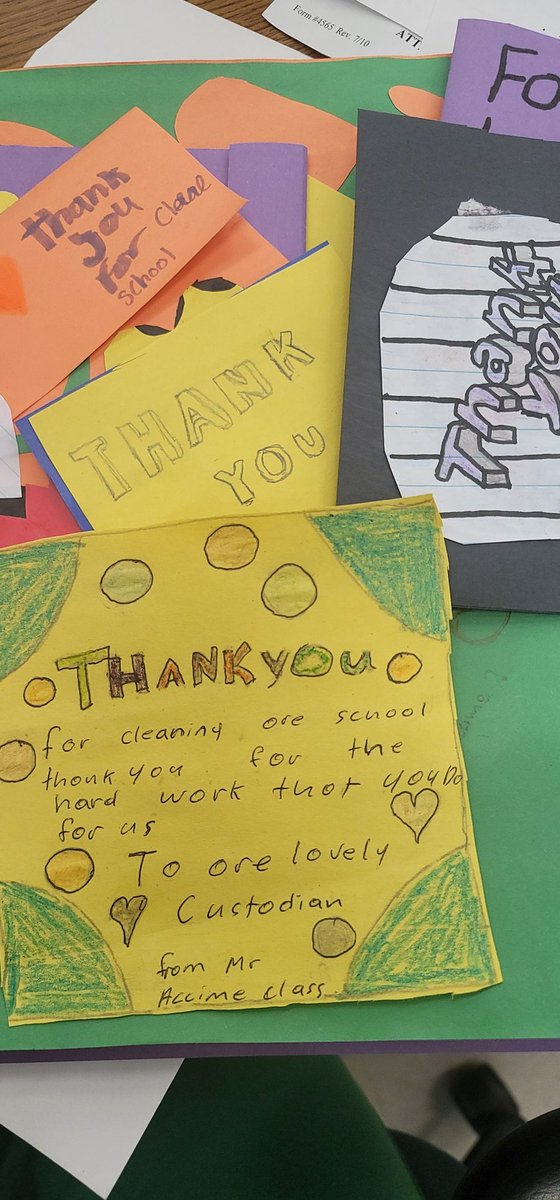 Form #4565 Rev. 7/10
ATT.
Fo
thank
you
for Clane
school
Thank
you
THANK
YOU
THANKyOu
for cleaning ore school
thank you for the
hard work that you Do
for us
To ore lovely
Custodian
from Mr
Accime class